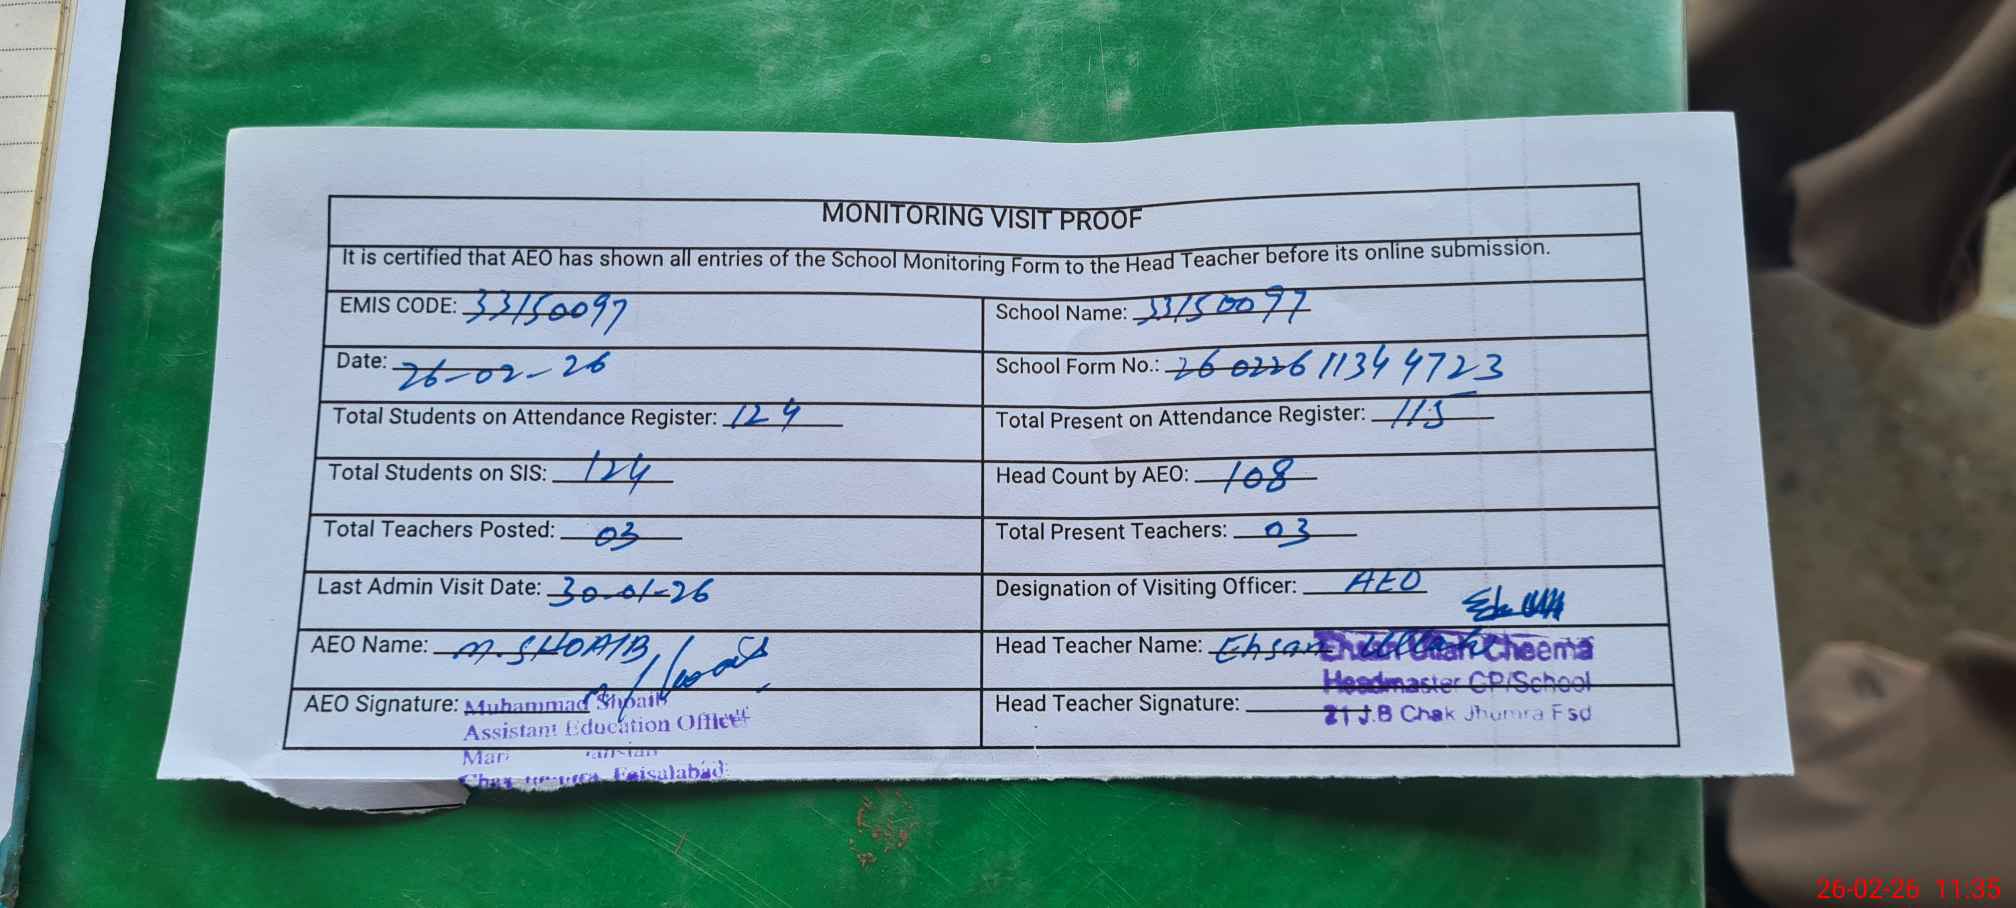 MONITORING VISIT PROOF
It is certified that AEO has shown all entries of the School Monitoring Form to the Head Teacher before its online submission.
EMIS CODE: 33150097
School Name: 33150097
Date: 26-02-26
School Form No.: 2602261134 4723
Total Students on Attendance Register: 124
Total Present on Attendance Register: 115
Total Students on SIS: 124
Head Count by AEO: 108
Total Teachers Posted: 03
Total Present Teachers: 03
Last Admin Visit Date: 30-01-26
Designation of Visiting Officer: AEO
AEO Name: M. SHOAIB
Head Teacher Name: Ehsan Ullah
Ehsan Ullah Cheema
Headmaster CP/School
AEO Signature:
Muhammad Shoaib
Assistant Education Officer
Faisalabad
Head Teacher Signature:
21 J.B Chak Jhumra Fsd
26-02-26 11:35